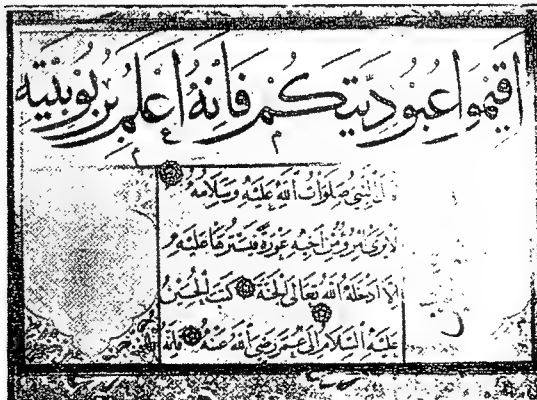 اَقِيمُوا عُبُودِيَّتَكُمْ فَاِنَّهُ اَعْلَمُ بِرُبُوبِيَّتِه
قال النَّبِيُّ صَلَوَاتُ اللهِ عَلَيْهِ وَسَلَامُهُ
لَا يَرَى امْرُؤٌ مِنْ اَخِيهِ عَوْرَةً فَيَسْتُرُهَا عَلَيْهِ
اِلَّا اَدْخَلَهُ اللهُ تَعَالَى الْجَنَّةَ كَتَبَ الْحُسَيْنُ
عَلَيْهِ السَّلَامُ اِلَى عُمَرَ رَضِيَ اللهُ عَنْهُ فَاِنَّهُ